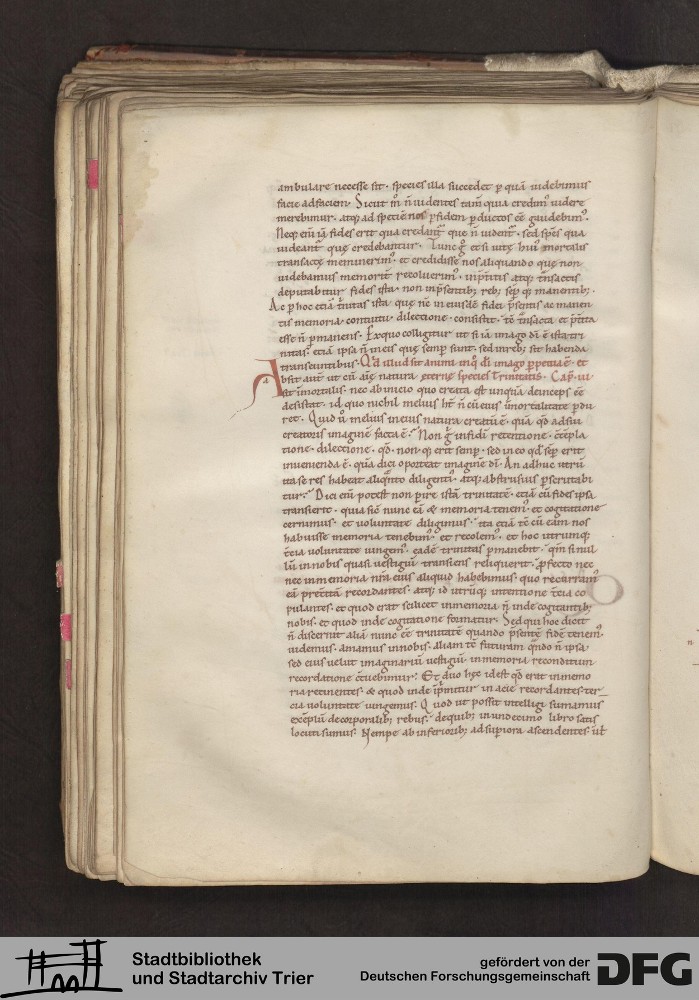 ambulare necesse sit · species illa succedet ꝑ quā uidebimus
facie adfaciem · Sicut m̄ n̄ uidentes tam̄ quia credim᷒ uidere
merebimur · atq; ad speciē nos ꝑfidem ꝑductos eē gaudebim᷒ ·
Neq; enī iā fides erit qua credant᷒ que n̄ uident᷒ · sed spēs qua
uideant᷒ quę credebantur · Tunc g̊ etsi uitę hui᷒ mortalis
transactę meminerim᷒ · et credidisse nos aliquando quę non
uidebamus memorit̄ recoluerim᷒ · inp̄t̄itis atq; tn̄sactis
deputabitur fides ista · non inp̄sentib; reb; sēp q; manentib;
Ac ꝑ hoc etiā t̄nitas ista quę nc̄ in eiusdē fidei p̄sentis ac manen
tis memoria · contuitu · dilectione · consistit · tc̄ tn̄sacta et p̄t̄ita
esse n̄ ꝑmanens · Ex quo colligitur ut si iā imago dī ē ista tri
nitas · etiā ipsa n̄ ineis quę semꝑ sunt · sed inreb; sit habenda
transeuntibus · Qđ illud sit animi inq° dī imago ꝑpetua ē · et
Absit aut̄ ut cū aīę natura ęternę species Trinitatis · Cap̄ · iii
sit īmortalis · nec ab inicio quo creata est unquā deinceps eē
desistat · id quo nichil melius ht̄ n̄ cū eius īmortalitate ꝑdu
ret · Quid ū melius ineius natura creatū ē · quā qđ adsui
creatoris imaginē facta ē · Non g̊ infidei retentione · c̄tēpla
tione · dilectione · qđ · non · q; erit semꝑ · sed in eo qđ sēp erit
inuenienda ē · quā dici oporteat imaginē dī · An adhuc utrū
ita se res habeat aliq̄nto diligenti᷒ · atq; abstrusius ꝑscrutabi
tur · Dici enī potest non ꝑire istā trinitatē · etiā cū fides ipsa
transierit · quia sic̄ nunc eā & memoria tenem᷒ · et cogitatione
cernimus · et uoluntate diligimus · ita etiā tc̄ cū eam nos
habuisse memoria tenebim᷒ · et recolem᷒ · et hoc utrunq;
t̄cia uoluntate iungem᷒ · eadē trinitas ꝑmanebit · qm̄ si nul
lū in nobis quasi uestigiū transiens reliquerit · ꝓfecto nec
nec in memoria nr̄a eius aliquid habebimus · quo recurram᷒
eā p̄t̄itā recordantes · atq; id utrūq; intentione t̄cia co
pulantes · et quod erat scilicet inmemoria n̄ inde cogitantib;
nobis · et quod inde cogitatione formatur · Sed qui hoc dicit
n̄ discernit aliā nunc eē trinitatē quando p̄sentē fidē tenem᷒ ·
uidemus · amamus innobis · aliam tc̄ futuram qn̄do n̄ ipsā ·
sed eius uelut imaginariū uestigiū in memoria reconditum
recordatione c̄tuebimur · Et duo hęc idest qđ erat inmemo
ria retinentes · & quod inde īp̄mitur in acie recordantes · ter
cia uoluntate iungemus · Quod ut possit intelligi sumamus
exēplū decorporalib; rebus · dequib; in undecimo libro satis
locuti sumus · Nempe ab inferiorib; ad suꝑiora ascendentes · ut
Stadtbibliothek
und Stadtarchiv Trier
gefördert von der
Deutschen Forschungsgemeinschaft
DFG